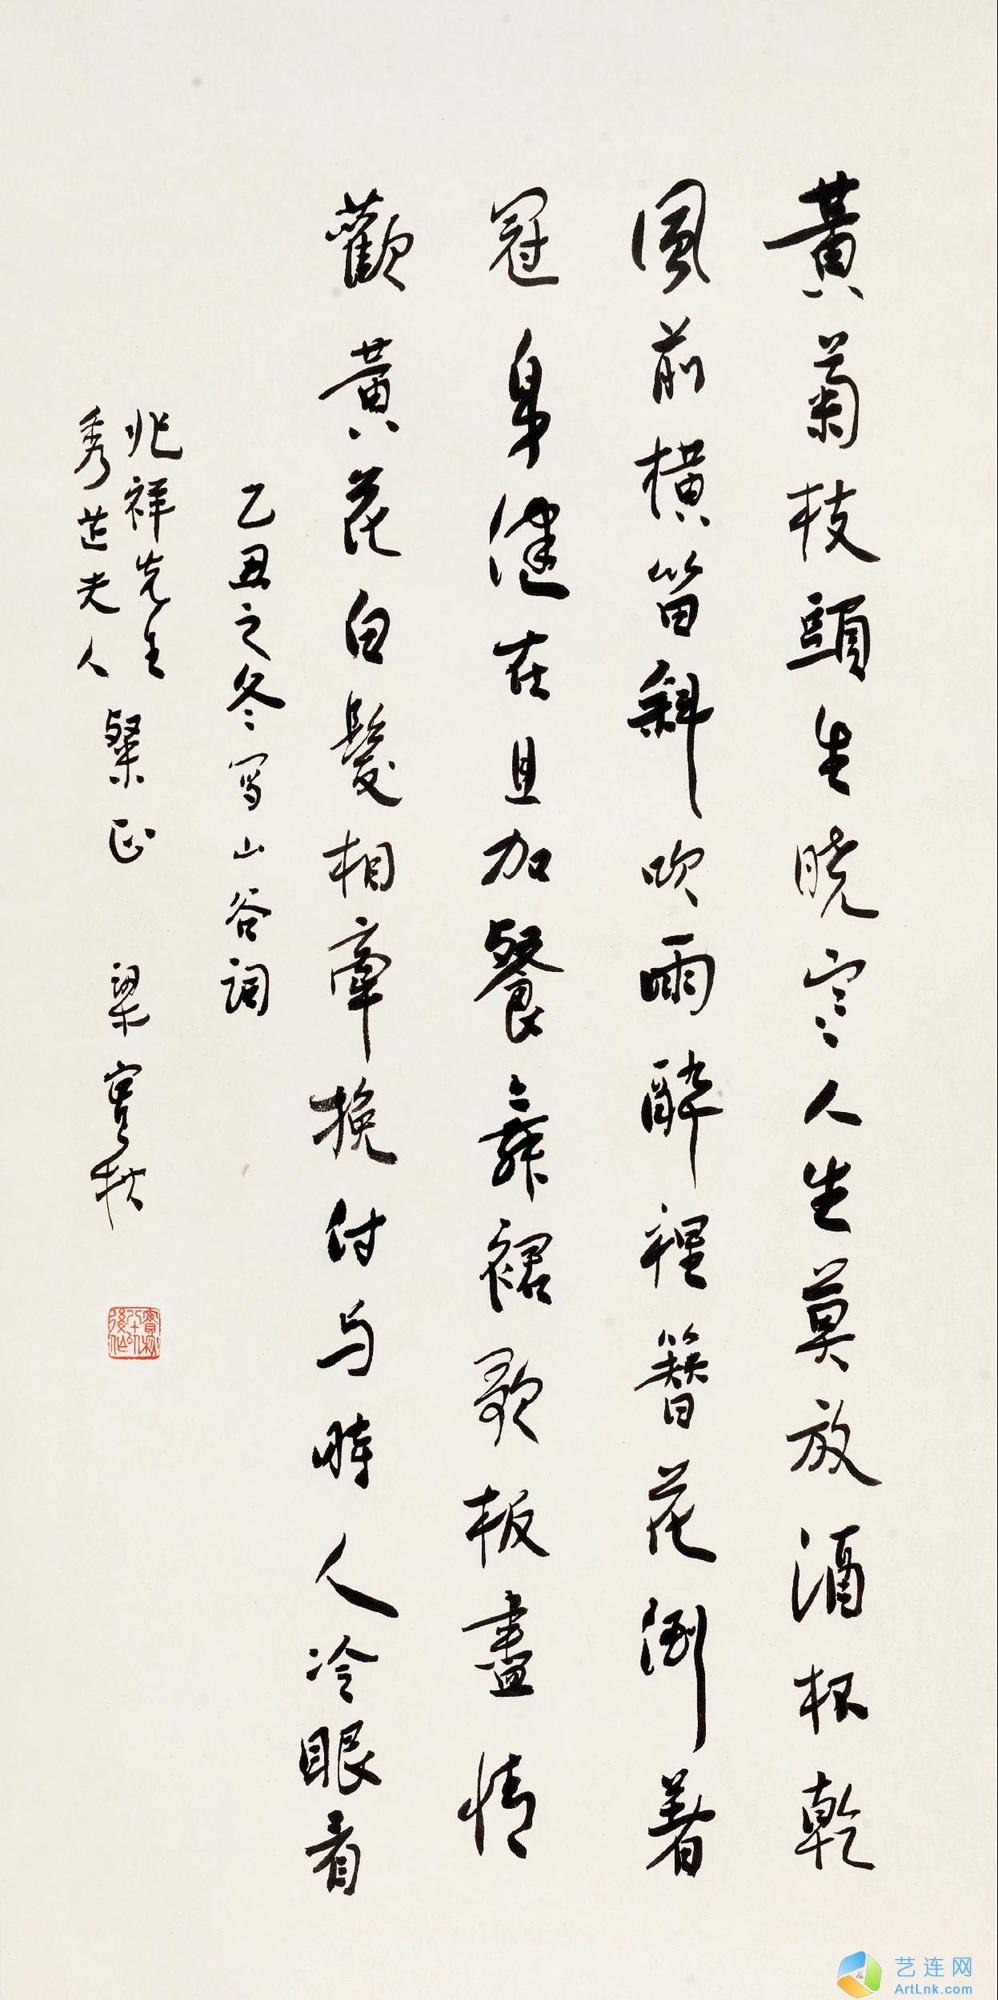 黃菊枝頭生曉寒人生莫放酒杯乾
風前橫笛斜吹雨醉裡簪花倒著
冠身健在且加餐舞裙歌板盡情
歡黃花白髮相牽挽付与時人冷眼看
乙丑之冬寫山谷詞
兆祥先生
秀芷夫人
粲正 梁實秋
艺连网
ArtLnk.com